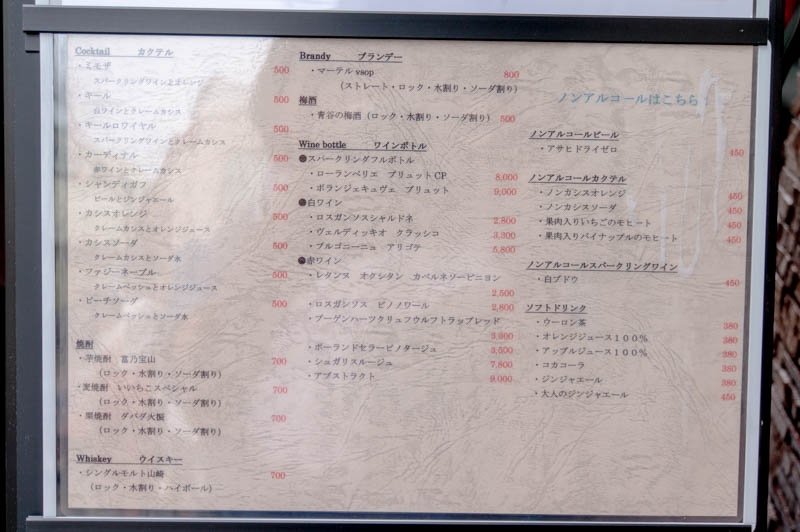 Cocktail カクテル
・ミモザ 500
スパークリングワインとオレンジ
・キール 500
白ワインとクレームカシス
・キールロワイヤル 500
スパークリングワインとクレームカシス
・カーディナル 500
赤ワインとクレームカシス
・シャンディガフ 500
ビールとジンジャエール
・カシスオレンジ 500
クレームカシスとオレンジジュース
・カシスソーダ 500
クレームカシスとソーダ水
・ファジーネーブル 500
クレームペッシュとオレンジジュース
・ピーチソーダ 500
クレームペッシュとソーダ水
焼酎
・芋焼酎 富乃宝山 700
(ロック・水割り・ソーダ割り)
・麦焼酎 いいちこスペシャル 700
(ロック・水割り・ソーダ割り)
・栗焼酎 ダバダ火振 700
(ロック・水割り・ソーダ割り)
Whiskey ウイスキー
・シングルモルト山崎 700
(ロック・水割り・ハイボール)
Brandy ブランデー
・マーテル vsop 800
(ストレート・ロック・水割り・ソーダ割り)
梅酒
・青谷の梅酒(ロック・水割り・ソーダ割り) 500
Wine bottle ワインボトル
●スパークリングフルボトル
・ローランペリエ ブリュット CP 8,000
・ボランジェキュヴェ ブリュット 9,000
●白ワイン
・ロスガンソスシャルドネ 2,800
・ヴェルディッキオ クラッシコ 3,300
・ブルゴニーニュ アリゴテ 5,800
●赤ワイン
・レタンヌ オクシタン カベルネソービニヨン
2,500
・ロスガンソス ピノノワール 2,800
・ブーゲンハーツクリュフウルフトラップレッド
3,000
・ボーランドセラーピノタージュ 3,500
・シュガリスルージュ 7,800
・アブストラクト 9,000
ノンアルコールはこちら!
ノンアルコールビール
・アサヒドライゼロ 450
ノンアルコールカクテル
・ノンカシスオレンジ 450
・ノンカシスソーダ 450
・果肉入りいちごのモヒート 450
・果肉入りパイナップルのモヒート 450
ノンアルコールスパークリングワイン
・白ブドウ 450
ソフトドリンク
・ウーロン茶 380
・オレンジジュース100% 380
・アップルジュース100% 380
・コカコーラ 380
・ジンジャエール 380
・大人のジンジャエール 450